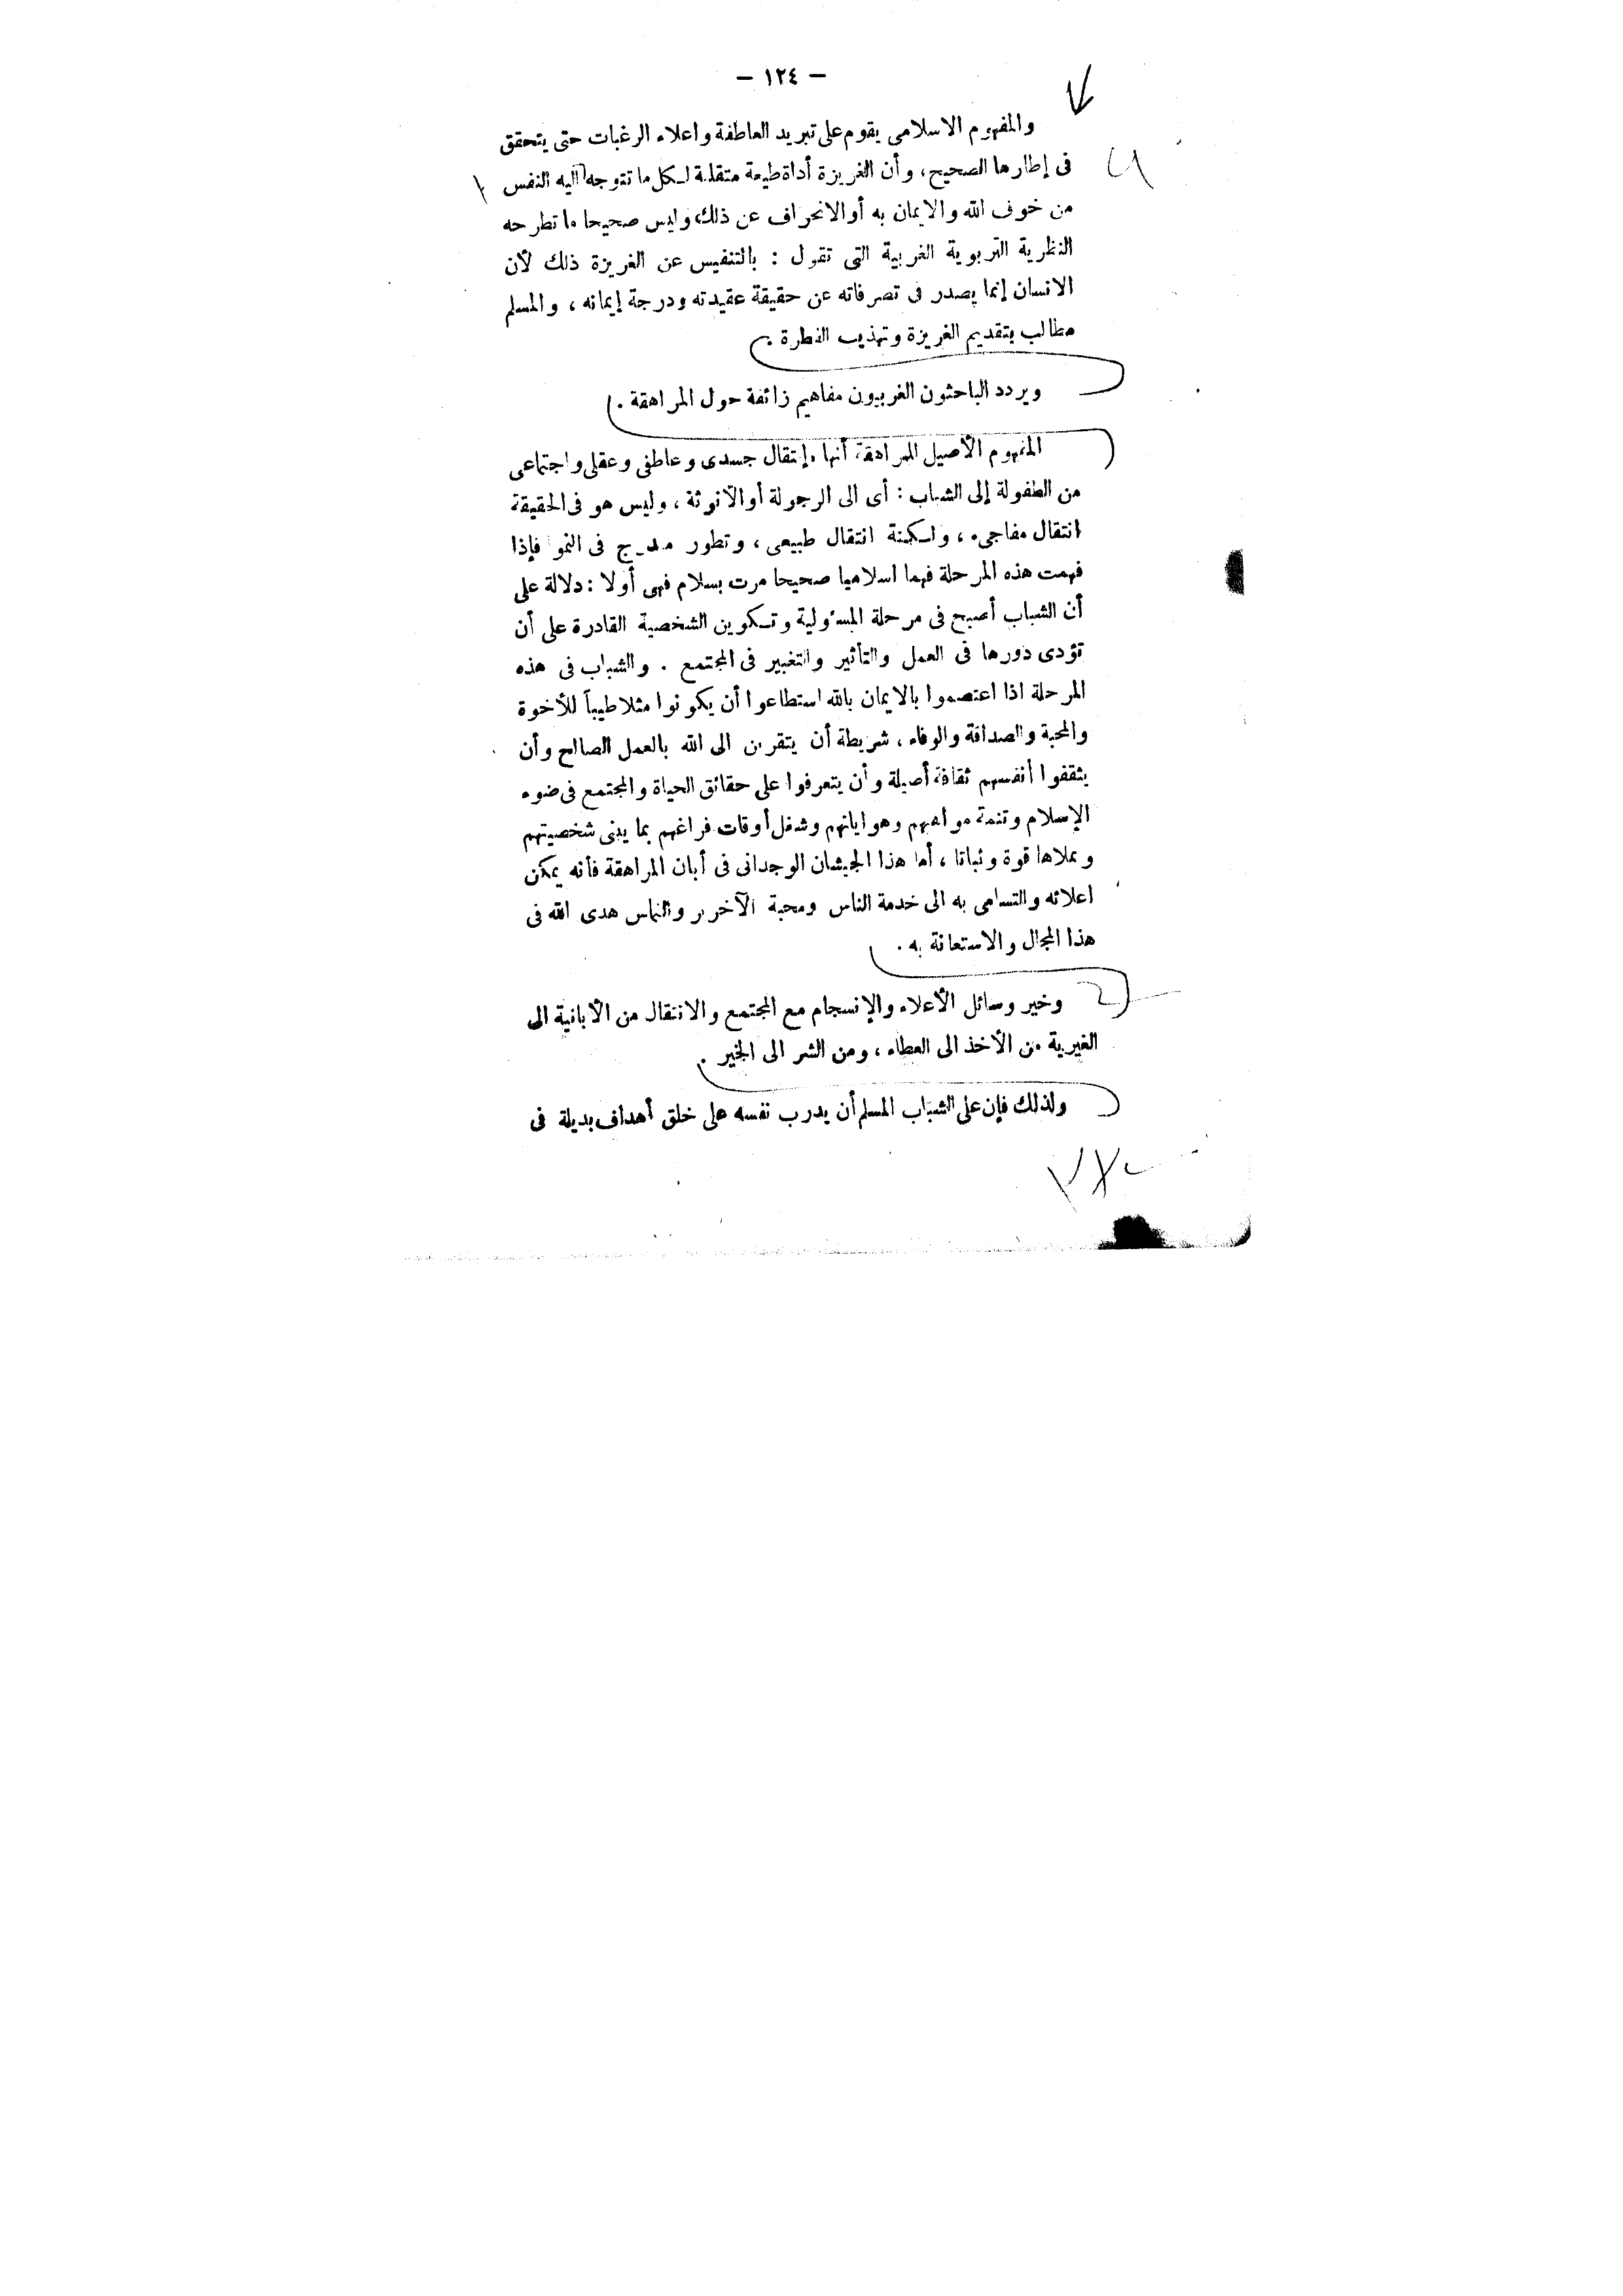 — ١٢٤ —
والمفهوم الاسلامى يقوم على تبريد العاطفة واعلاء الرغبات حتى يتحقق
فى إطارها الصحيح، وأن الغريزة أداة طيعة متقبلة لكل ما تتوجه اليه النفس
من خوف الله والايمان به أو الانحراف عن ذلك، وليس صحيحا ما تطرحه
النظرية التربوية الغربية التى تقول : بالتنفيس عن الغريزة ذلك لأن
الانسان إنما يصدر فى تصرفاته عن حقيقة عقيدته ودرجة إيمانه ، والمسلم
مطالب بتقديم الغريزة وتهذيب الفطرة .
ويردد الباحثون الغربيون مفاهيم زائفة حول المراهقة .
المفهوم الأصيل للمراهقة أنها إنتقال جسدى وعاطفى وعقلى واجتماعى
من الطفولة إلى الشباب : أى الى الرجولة أو الأنوثة ، وليس هو فى الحقيقة
انتقال مفاجىء ، ولكنة انتقال طبيعى ، وتطور فى النمو فإذا
فهمت هذه المرحلة فهما اسلاميا صحيحا مرت بسلام فهى أولا : دلالة على
أن الشباب أصبح فى مرحلة المسئولية وتكوين الشخصية القادرة على أن
تؤدى دورها فى العمل والتأثير والتغيير فى المجتمع . والشباب فى هذه
المرحلة اذا اعتصموا بالايمان بالله استطاعوا أن يكونوا مثلا طيباً للأخوة
والمحبة والصداقة والوفاء ، شريطة أن الى الله بالعمل الصالح وأن
يثقفوا أنفسهم ثقافة أصيلة وأن يتعرفوا على حقائق الحياة والمجتمع فى ضوء
الإسلام وتنمة مواهبهم وهواياتهم وشغل أوقات فراغهم بما يبنى شخصيتهم
ويملاها قوة وثباتا ، أما هذا الجيشان الوجدانى فى أبان المراهقة فأنه يمكن
اعلائه والتسامى به الى خدمة الناس ومحبة الآخرير والتماس هدى الله فى
هذا المجال والاستعانة به .
وخير وسائل الأعلاء والإنسجام مع المجتمع والانتقال من الأنانية الى
الغيرية من الأخذ الى العطاء ، ومن الشر الى الخير .
ولذلك فإن على الشباب المسلم أن يدرب نفسه على خلق أهداف بديلة فى